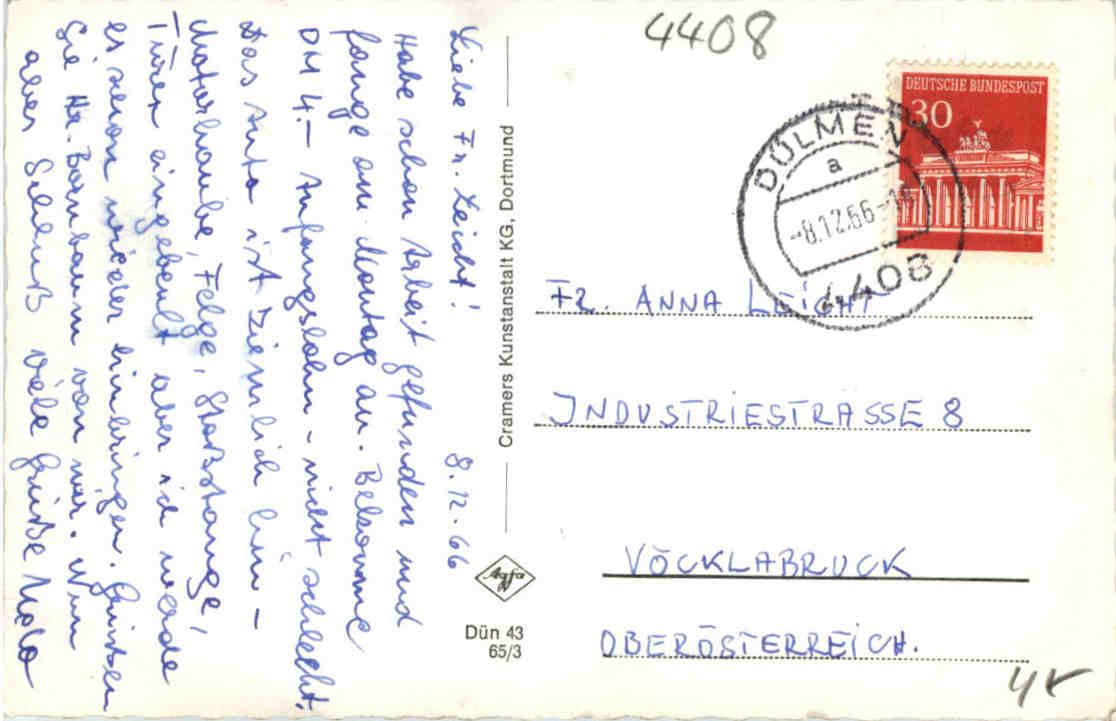 8.12.66
Liebe Fr. Leicht!
Habe schon Arbeit gefunden und
fange am Montag an. Bekomme
DM 4.- Anfangslohn - nicht schlecht.
Das Auto ist ziemlich hin -
Motorhaube, Felge, Stoßstange,
Türen eingebeult aber ich werde
es schon wieder hinbringen. Grüßen
Sie Hr. Bornbaum von mir. Nun
aber Schluß viele Grüße
Cramers Kunstanstalt KG, Dortmund
Agfa
Dün 43
65/3
4408
DEUTSCHE BUNDESPOST
30
DÜLMEN
a
-8.12.66-
4408
Fr. ANNA LEICHT
INDUSTRIESTRASSE 8
VÖCKLABRUCK
OBERÖSTERREICH.